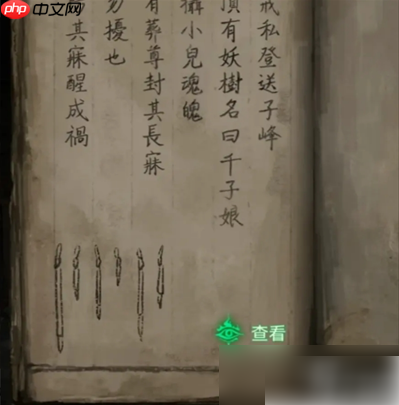 php中文网
戒私登送子峰
頂有妖樹名曰千子娘
攝小兒魂魄
有葬尊封其長寐
勿擾也
其寐醒成禍
查看